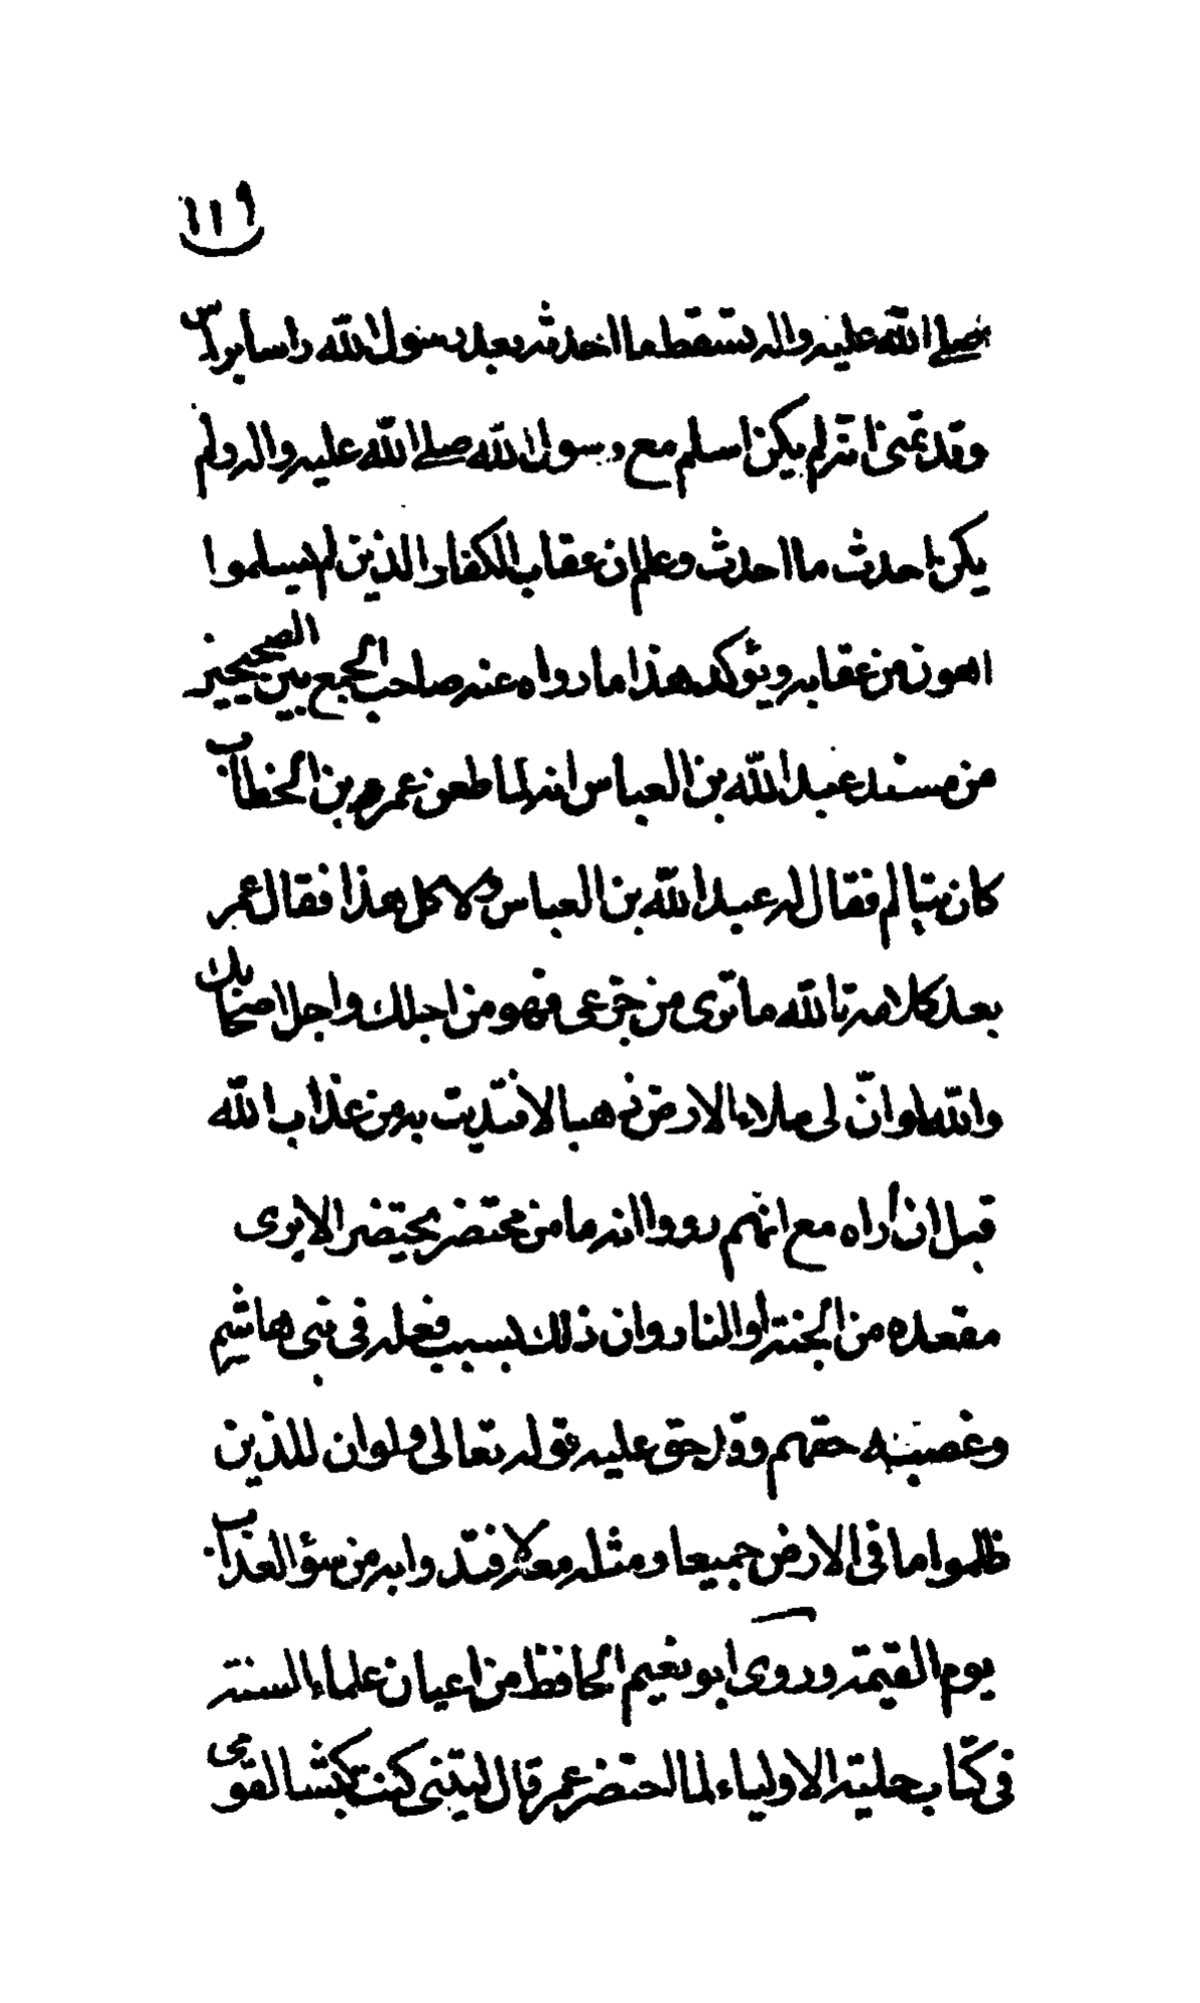 ١١٩
صلى الله عليه واله تسقط ما احدثه بعد رسول الله راسا براس
وقد تمنى انه لم يكن اسلم مع رسول الله صلى الله عليه واله ولم
يكن احدث ما احدث وعلم ان عقاب الكفار الذين لم يسلموا
اهون من عقابه ويؤكد هذا ما رواه عنه صاحب الجمع بين الصحيحين
من مسند عبد الله بن العباس انه لما طعن عمر بن الخطاب
كان يتالم فقال له عبد الله بن العباس ولا كل هذا فقال عمر
بعد كلامه تالله ما ترى من جزعى فهو من اجلك واجل اصحابك
والله لو انّ لى ملاء الارض ذهبا لافتديت به من عذاب الله
قبل ان أراه مع انهم رووا انه ما من محتضر يحتضر الا يرى
مقعده من الجنة أو النار وان ذلك بسبب فعله فى بنى هاشم
وغصبه حقهم وقد حق عليه قوله تعالى ولو ان للذين
ظلموا ما فى الارض جميعا ومثله معه لافتدوا به من سؤ العذاب
يوم القيمة وروى ابو نعيم الحافظ من اعيان علماء السنة
فى كتاب حلية الاولياء لما احتضر عمر قال ليتنى كنت كبشا لقومى